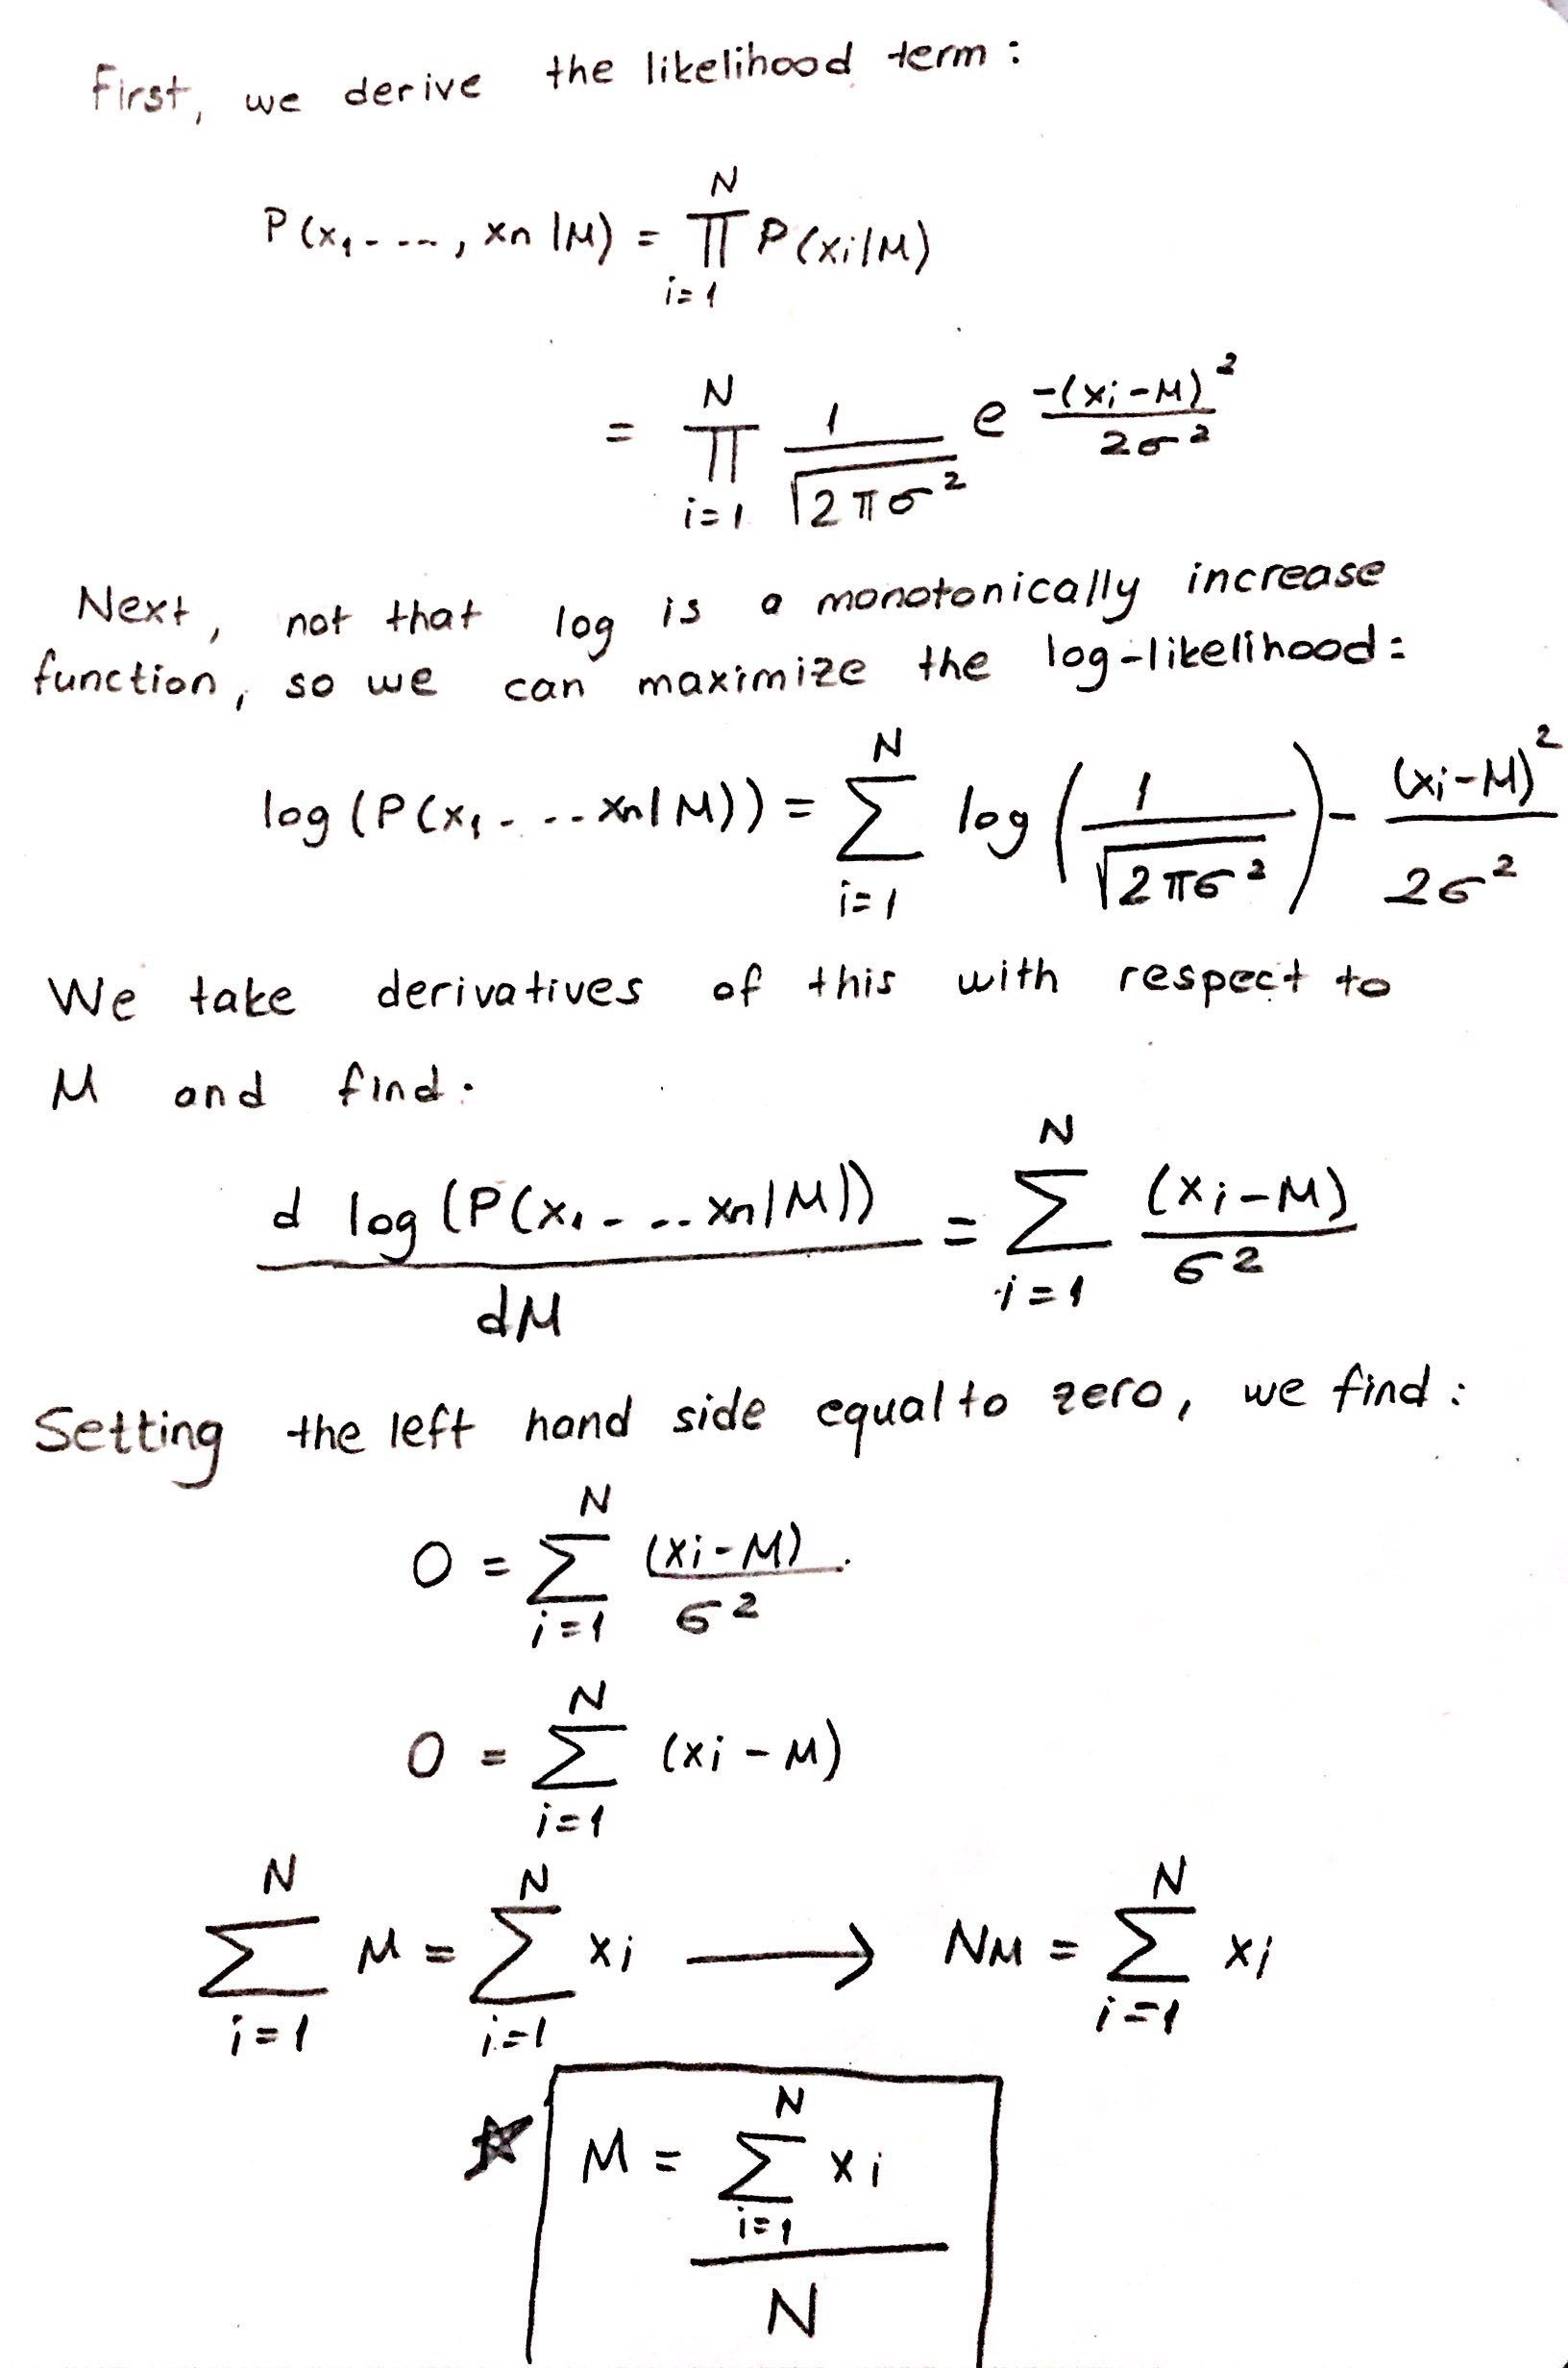 First, we derive the likelihood term :
P(x₁ - ---, xn |M) = ∏_{i=1}^{N} P(xi|M)
= ∏_{i=1}^{N} 1/√(2πσ²) e^{-(xi-M)²/2σ²}
Next, not that log is a monotonically increase
function, so we can maximize the log-likelihood:
log (P(x₁ - - -- xn|M)) = ∑_{i=1}^{N} log (1/√(2πσ²)) - (xi-M)²/2σ²
We take derivatives of this with respect to
M and find:
d log (P(x₁ - - -- xn|M))/dM = ∑_{i=1}^{N} (xi-M)/σ²
Setting the left hand side equal to zero, we find :
0 = ∑_{i=1}^{N} (xi-M)/σ²
0 = ∑_{i=1}^{N} (xi - M)
∑_{i=1}^{N} M = ∑_{i=1}^{N} xi ⟶ NM = ∑_{i=1}^{N} xi
☆ M = ∑_{i=1}^{N} xi / N